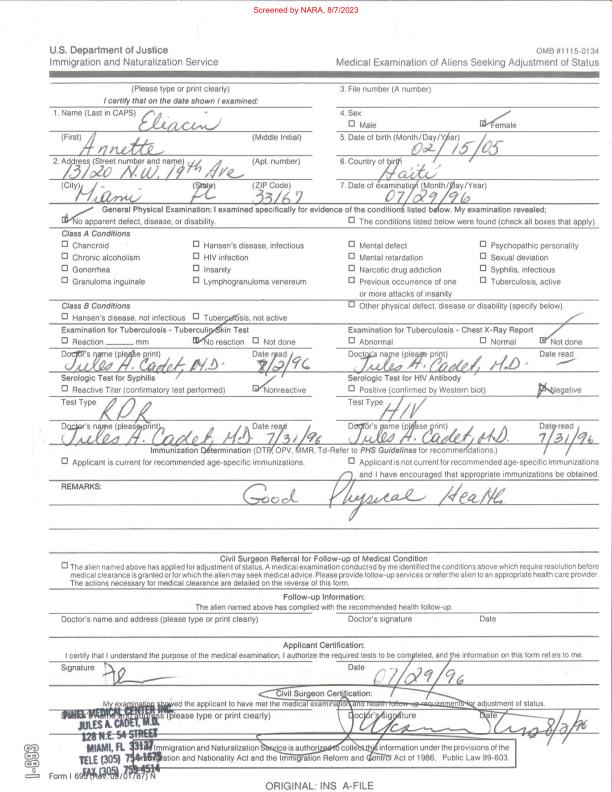 Screened by NARA, 8/7/2023
U.S. Department of Justice
Immigration and Naturalization Service
OMB #1115-0134
Medical Examination of Aliens Seeking Adjustment of Status
(Please type or print clearly)
I certify that on the date shown I examined:
3. File number (A number)
1. Name (Last in CAPS) Eliacin
4. Sex
☐ Male ☑ Female
(First) Annette (Middle Initial)
5. Date of birth (Month/Day/Year) 02/15/05
2. Address (Street number and name) (Apt. number)
13120 N.W. 19th Ave
6. Country of birth Haiti
(City) Miami (State) FL (ZIP Code) 33167
7. Date of examination (Month/Day/Year) 07/29/96
General Physical Examination: I examined specifically for evidence of the conditions listed below. My examination revealed;
☑ No apparent defect, disease, or disability. ☐ The conditions listed below were found (check all boxes that apply).
Class A Conditions
☐ Chancroid ☐ Hansen's disease, infectious ☐ Mental defect ☐ Psychopathic personality
☐ Chronic alcoholism ☐ HIV infection ☐ Mental retardation ☐ Sexual deviation
☐ Gonorrhea ☐ Insanity ☐ Narcotic drug addiction ☐ Syphilis, infectious
☐ Granuloma inguinale ☐ Lymphogranuloma venereum ☐ Previous occurrence of one or more attacks of insanity ☐ Tuberculosis, active
Class B Conditions
☐ Hansen's disease, not infectious ☐ Tuberculosis, not active
☐ Other physical defect, disease or disability (specify below).
Examination for Tuberculosis - Tuberculin Skin Test
☐ Reaction ____ mm ☑ No reaction ☐ Not done
Examination for Tuberculosis - Chest X-Ray Report
☐ Abnormal ☐ Normal ☑ Not done
Doctor's name (please print) Date read
Jules A. Cadet, M.D. 8/2/96
Doctor's name (please print) Date read
Jules A. Cadet, M.D. —
Serologic Test for Syphilis
☐ Reactive Titer (confirmatory test performed) ☑ Nonreactive
Serologic Test for HIV Antibody
☐ Positive (confirmed by Western biot) ☒ Negative
Test Type RPR
Test Type HIV
Doctor's name (please print) Date read
Jules A. Cadet, M.D. 7/31/96
Doctor's name (please print) Date read
Jules A. Cadet, M.D. 7/31/96
Immunization Determination (DTP, OPV, MMR, Td-Refer to PHS Guidelines for recommendations.)
☐ Applicant is current for recommended age-specific immunizations.
☐ Applicant is not current for recommended age-specific immunizations
and I have encouraged that appropriate immunizations be obtained.
REMARKS: Good Physical Health
Civil Surgeon Referral for Follow-up of Medical Condition
☐ The alien named above has applied for adjustment of status. A medical examination conducted by me identified the conditions above which require resolution before
medical clearance is granted or for which the alien may seek medical advice. Please provide follow-up services or refer the alien to an appropriate health care provider.
The actions necessary for medical clearance are detailed on the reverse of this form.
Follow-up Information:
The alien named above has complied with the recommended health follow-up.
Doctor's name and address (please type or print clearly) Doctor's signature Date
Applicant Certification:
I certify that I understand the purpose of the medical examination, I authorize the required tests to be completed, and the information on this form refers to me.
Signature
Date 07/29/96
Civil Surgeon Certification:
My examination showed the applicant to have met the medical examination and health follow-up requirements for adjustment of status.
(please type or print clearly) Doctor's signature Date 8/3/96
PANEL MEDICAL CENTER INC.
JULES A. CADET, M.D.
128 N.E. 54 STREET
MIAMI, FL 33137
TELE (305) 754-1675
FAX (305) 759-4514
The Immigration and Naturalization Service is authorized to collect this information under the provisions of the
Immigration and Nationality Act and the Immigration Reform and Control Act of 1986, Public Law 99-603.
I-693
Form I 693 (Rev. 09/01/87) N
ORIGINAL: INS A-FILE